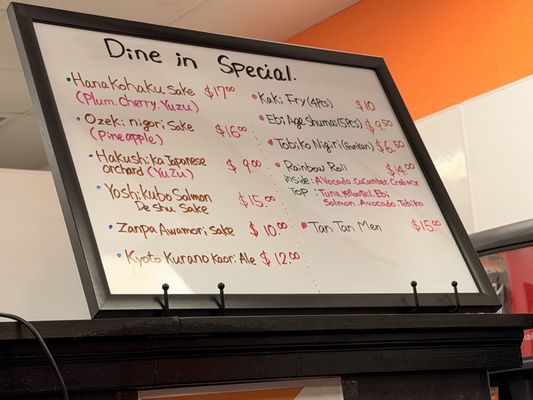 Dine in Special.
• Hana Kohaku Sake $17.00
(Plum.Cherry.Yuzu)
Ozeki nigori Sake $16.00
(Pineapple)
• Hakushika Japanese
orchard (Yuzu) $9.00
• Yoshikubo Salmon
De shu Sake $15.00
• Zanpa Awamori Sake $10.00
• Kyoto Kurano Kaori Ale $12.00
• Kaki Fry (4pcs) $10
• Ebi Age Shumai (5pcs) $9.50
• Tobiko Nigiri (Gunkan) $6.50
• Rainbow Roll $14.00
inside: Avocado.Cucumber.Crabmix
Top: Tuna.yellowtail.Ebi
Salmon.Avocado.Tobiko
• Tan Tan Men $15.00